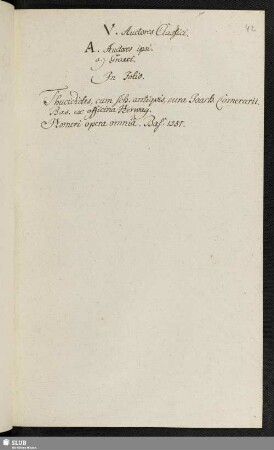 42
V. Auctores Classici.
A. Auctores ipsi.
a) Graeci.
In Folio.
Thucidides, cum schol. antiquis, cura Joach. Camerarii.
Bas. ex officina Hervag.
Homeri opera omnia. Bas. 1551.
SLUB